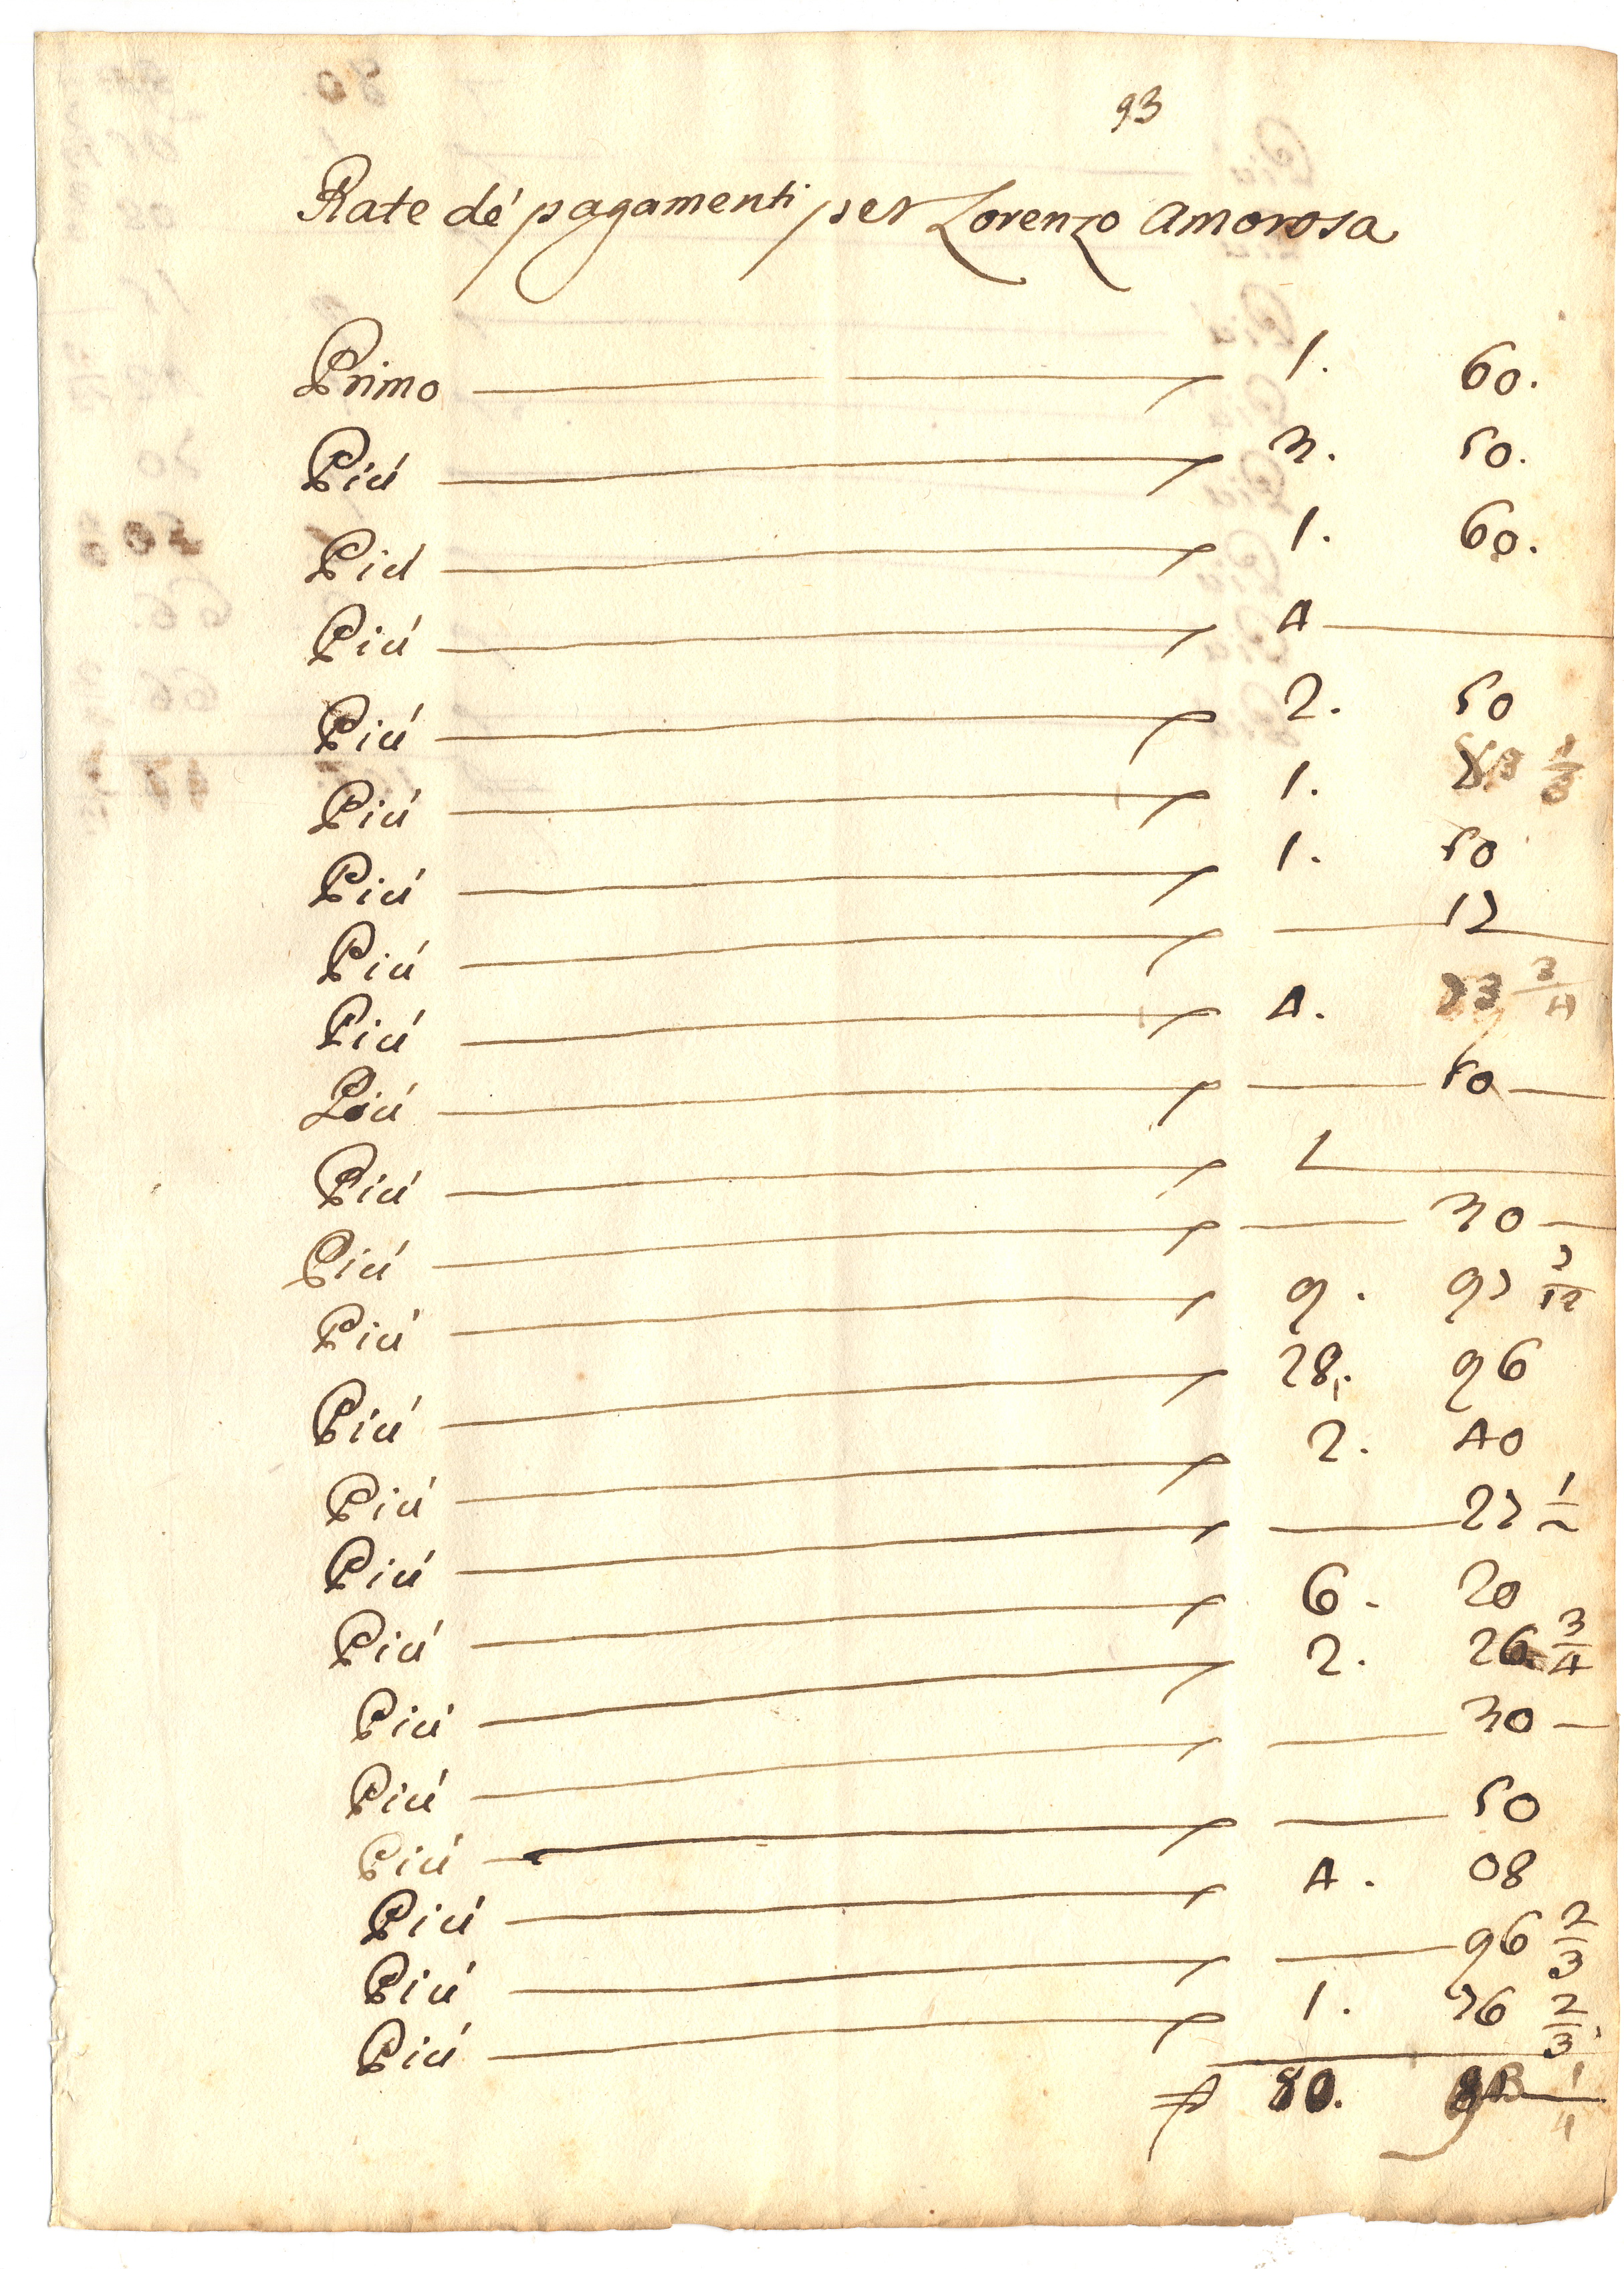 93
Rate dé pagamenti per Lorenzo Amorosa
Primo 1. 60.
Piú 3. 50.
Piú 1. 60.
Piú 4
Piú 2. 50
Piú 1. 83 1/3
Piú 1. 50
Piú 17
Piú 4. 73 3/4
Piú 50
Piú 1
Piú 30
Piú 9. 97 7/12
Piú 28. 96
Piú 2. 40
Piú 27 1/2
Piú 6. 20
Piú 2. 26 3/4
Piú 30
Piú 50
Piú 4. 08
Piú 96 2/3
Piú 1. 76 2/3
80. 93 1/4